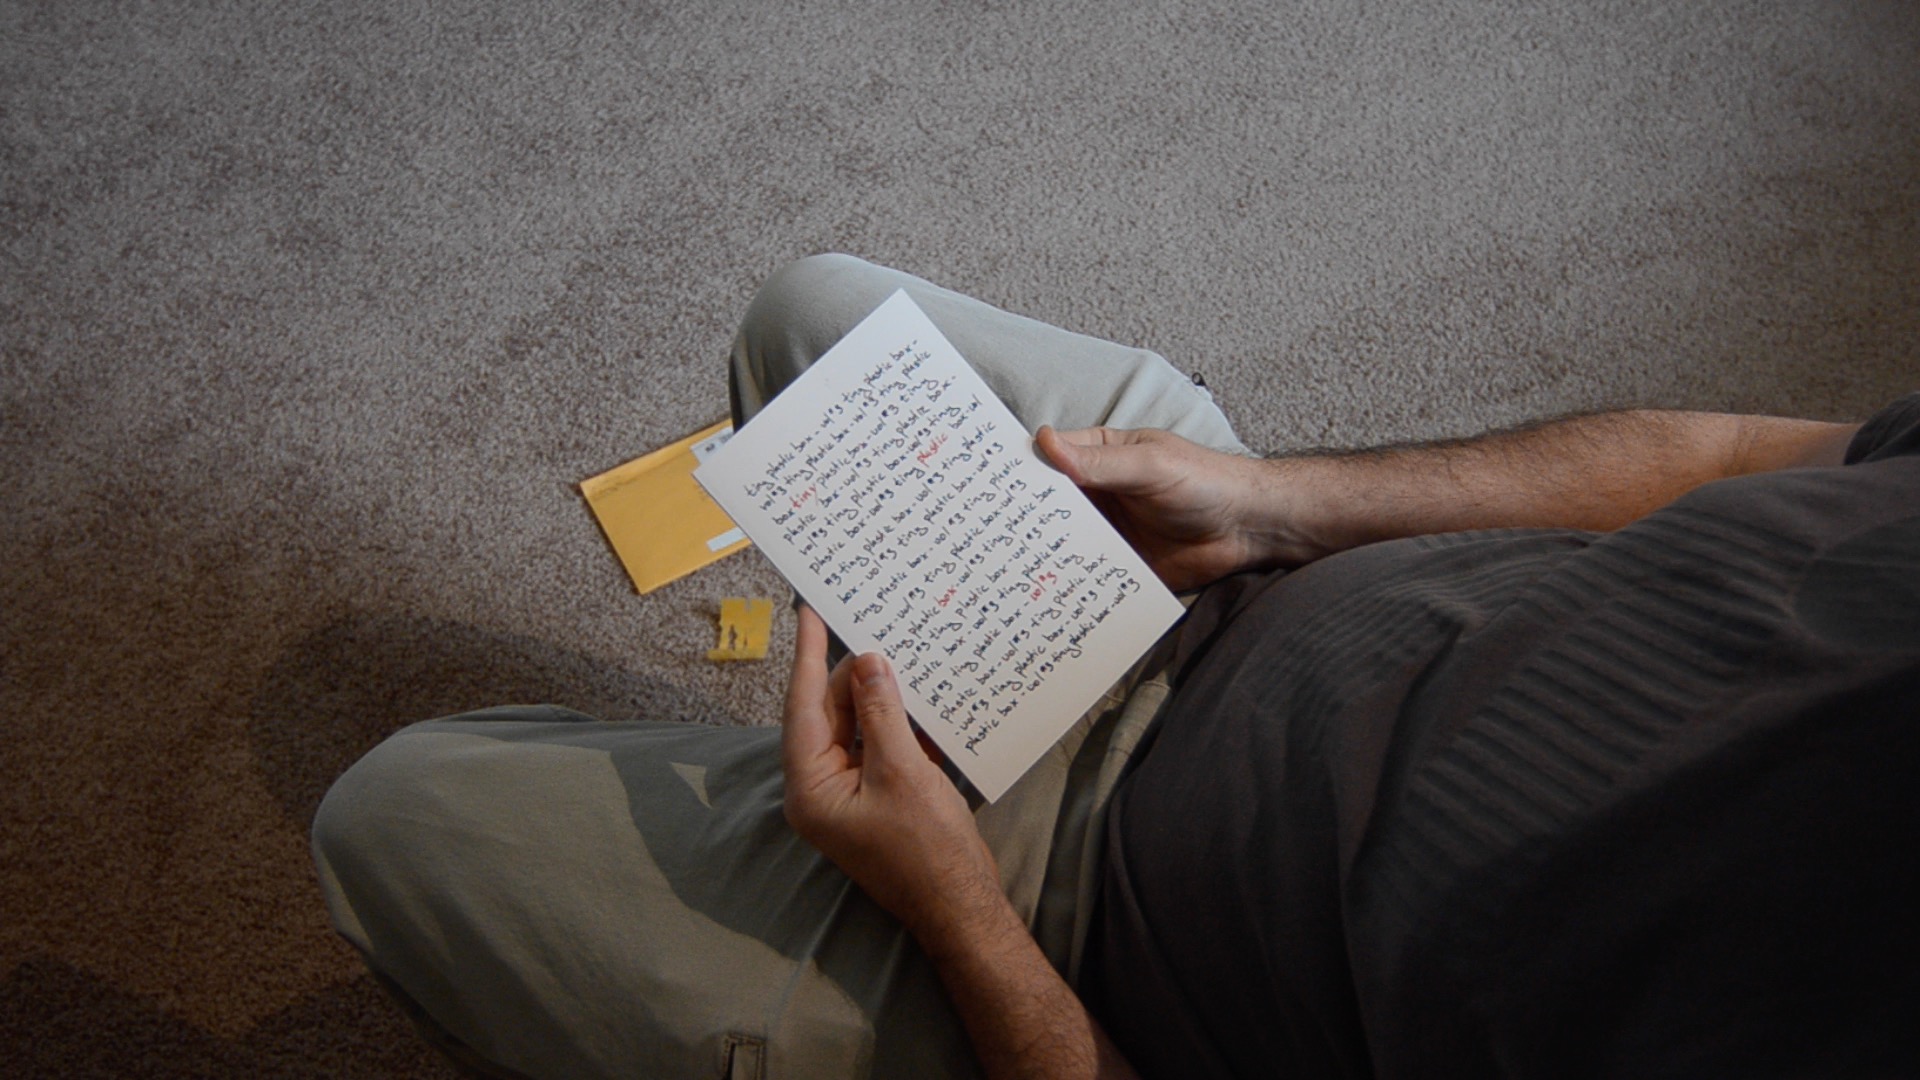 tiny plastic box - vol#3 tiny plastic box -
vol#3 tiny plastic box - vol#3 tiny plastic
box tiny plastic box - vol#3 tiny
plastic box - vol#3 tiny plastic box -
vol#3 tiny plastic box - vol#3 tiny
plastic box - vol#3 tiny plastic box - vol
#3 tiny plastic box - vol#3 tiny plastic
box - vol#3 tiny plastic box - vol#3
tiny plastic box - vol#3 tiny plastic
box - vol#3 tiny plastic box - vol#3
tiny plastic box - vol#3 tiny plastic box
- vol#3 tiny plastic box - vol#3 tiny
plastic box - vol#3 tiny plastic box -
vol#3 tiny plastic box - vol#3 tiny
plastic box - vol#3 tiny plastic box
- vol#3 tiny plastic box - vol#3 tiny
plastic box - vol#3 tiny plastic box - vol#3